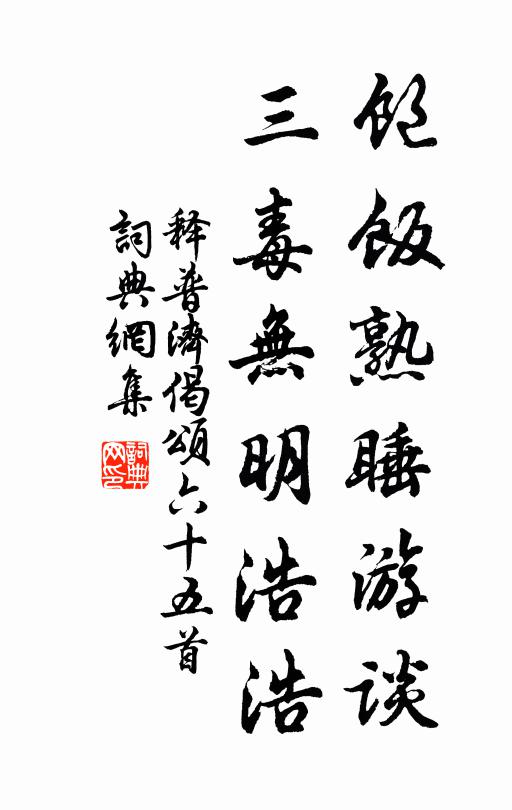 飽飯熟睡游談
三毒無明浩浩
释普濟偈頌六十五首
詞典網集
詞典网印